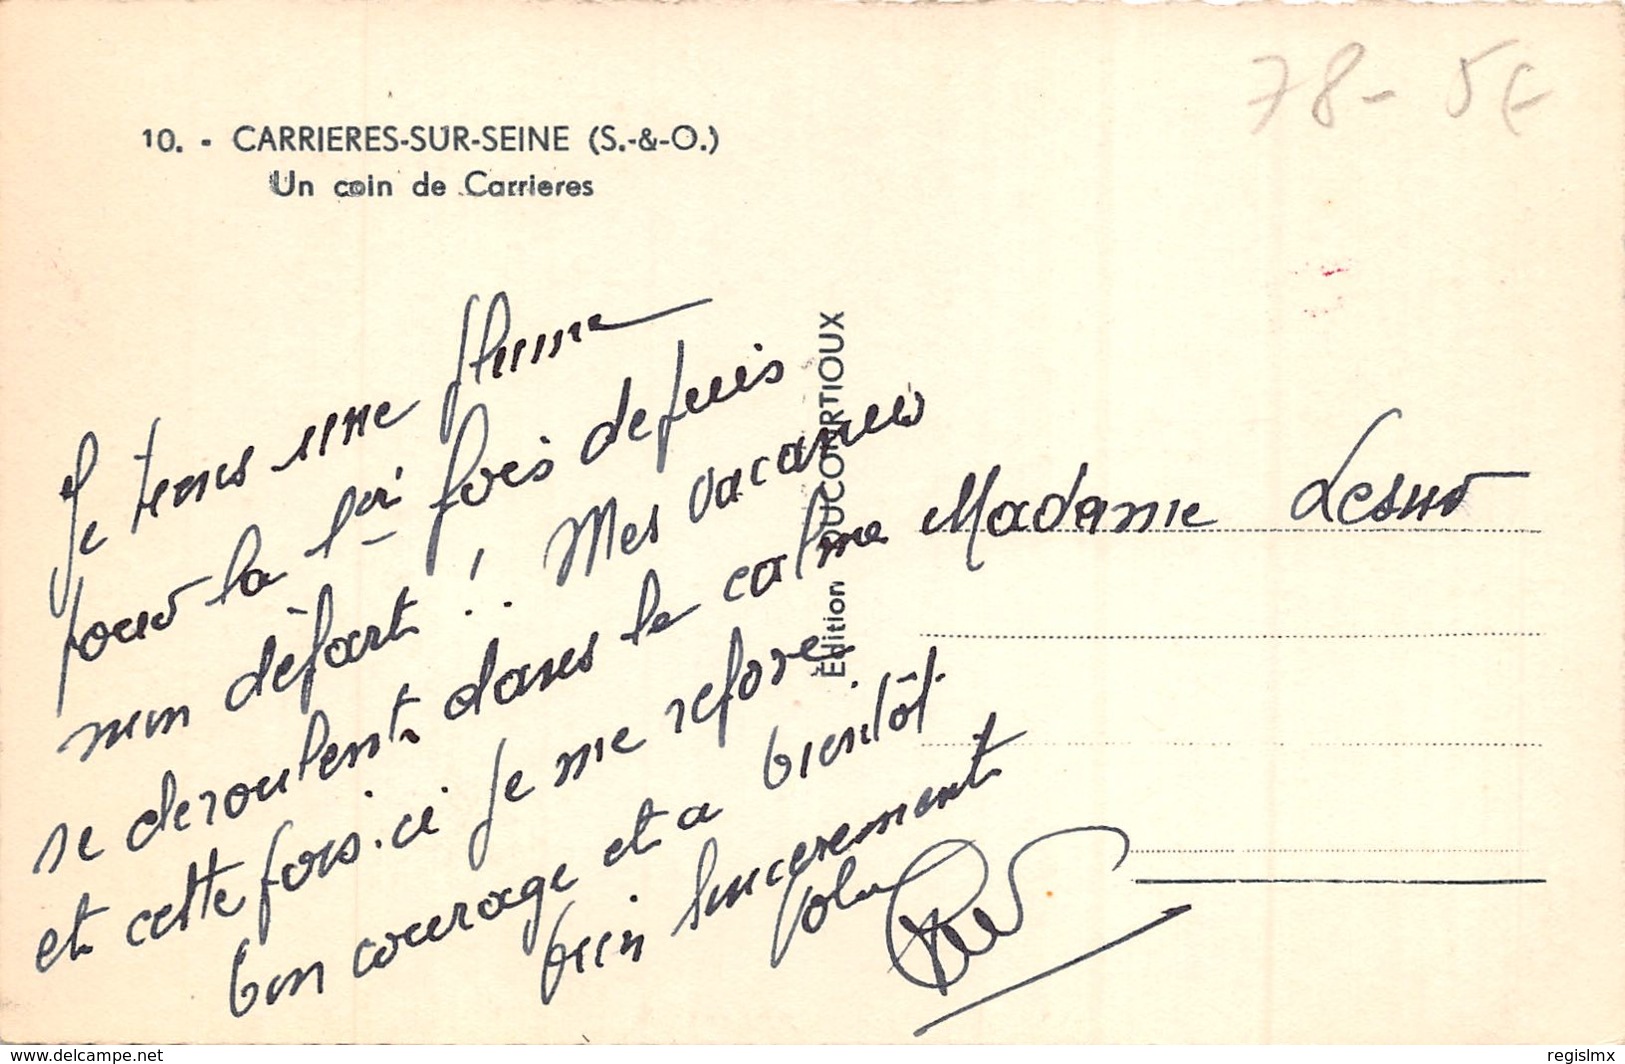 10. - CARRIERES-SUR-SEINE (S.-&-O.)
Un coin de Carrieres
78 - 5€
Je tiens une plume
pour la 1èr fois depuis
mon départ !! Mes vacances
se deroulent dans le calme
et cette fois-ci je me repose
bon courage et a bientôt
bien sincerement
Edition DUCOURTIOUX
Madame Lesur
www.delcampe.net
regislmx